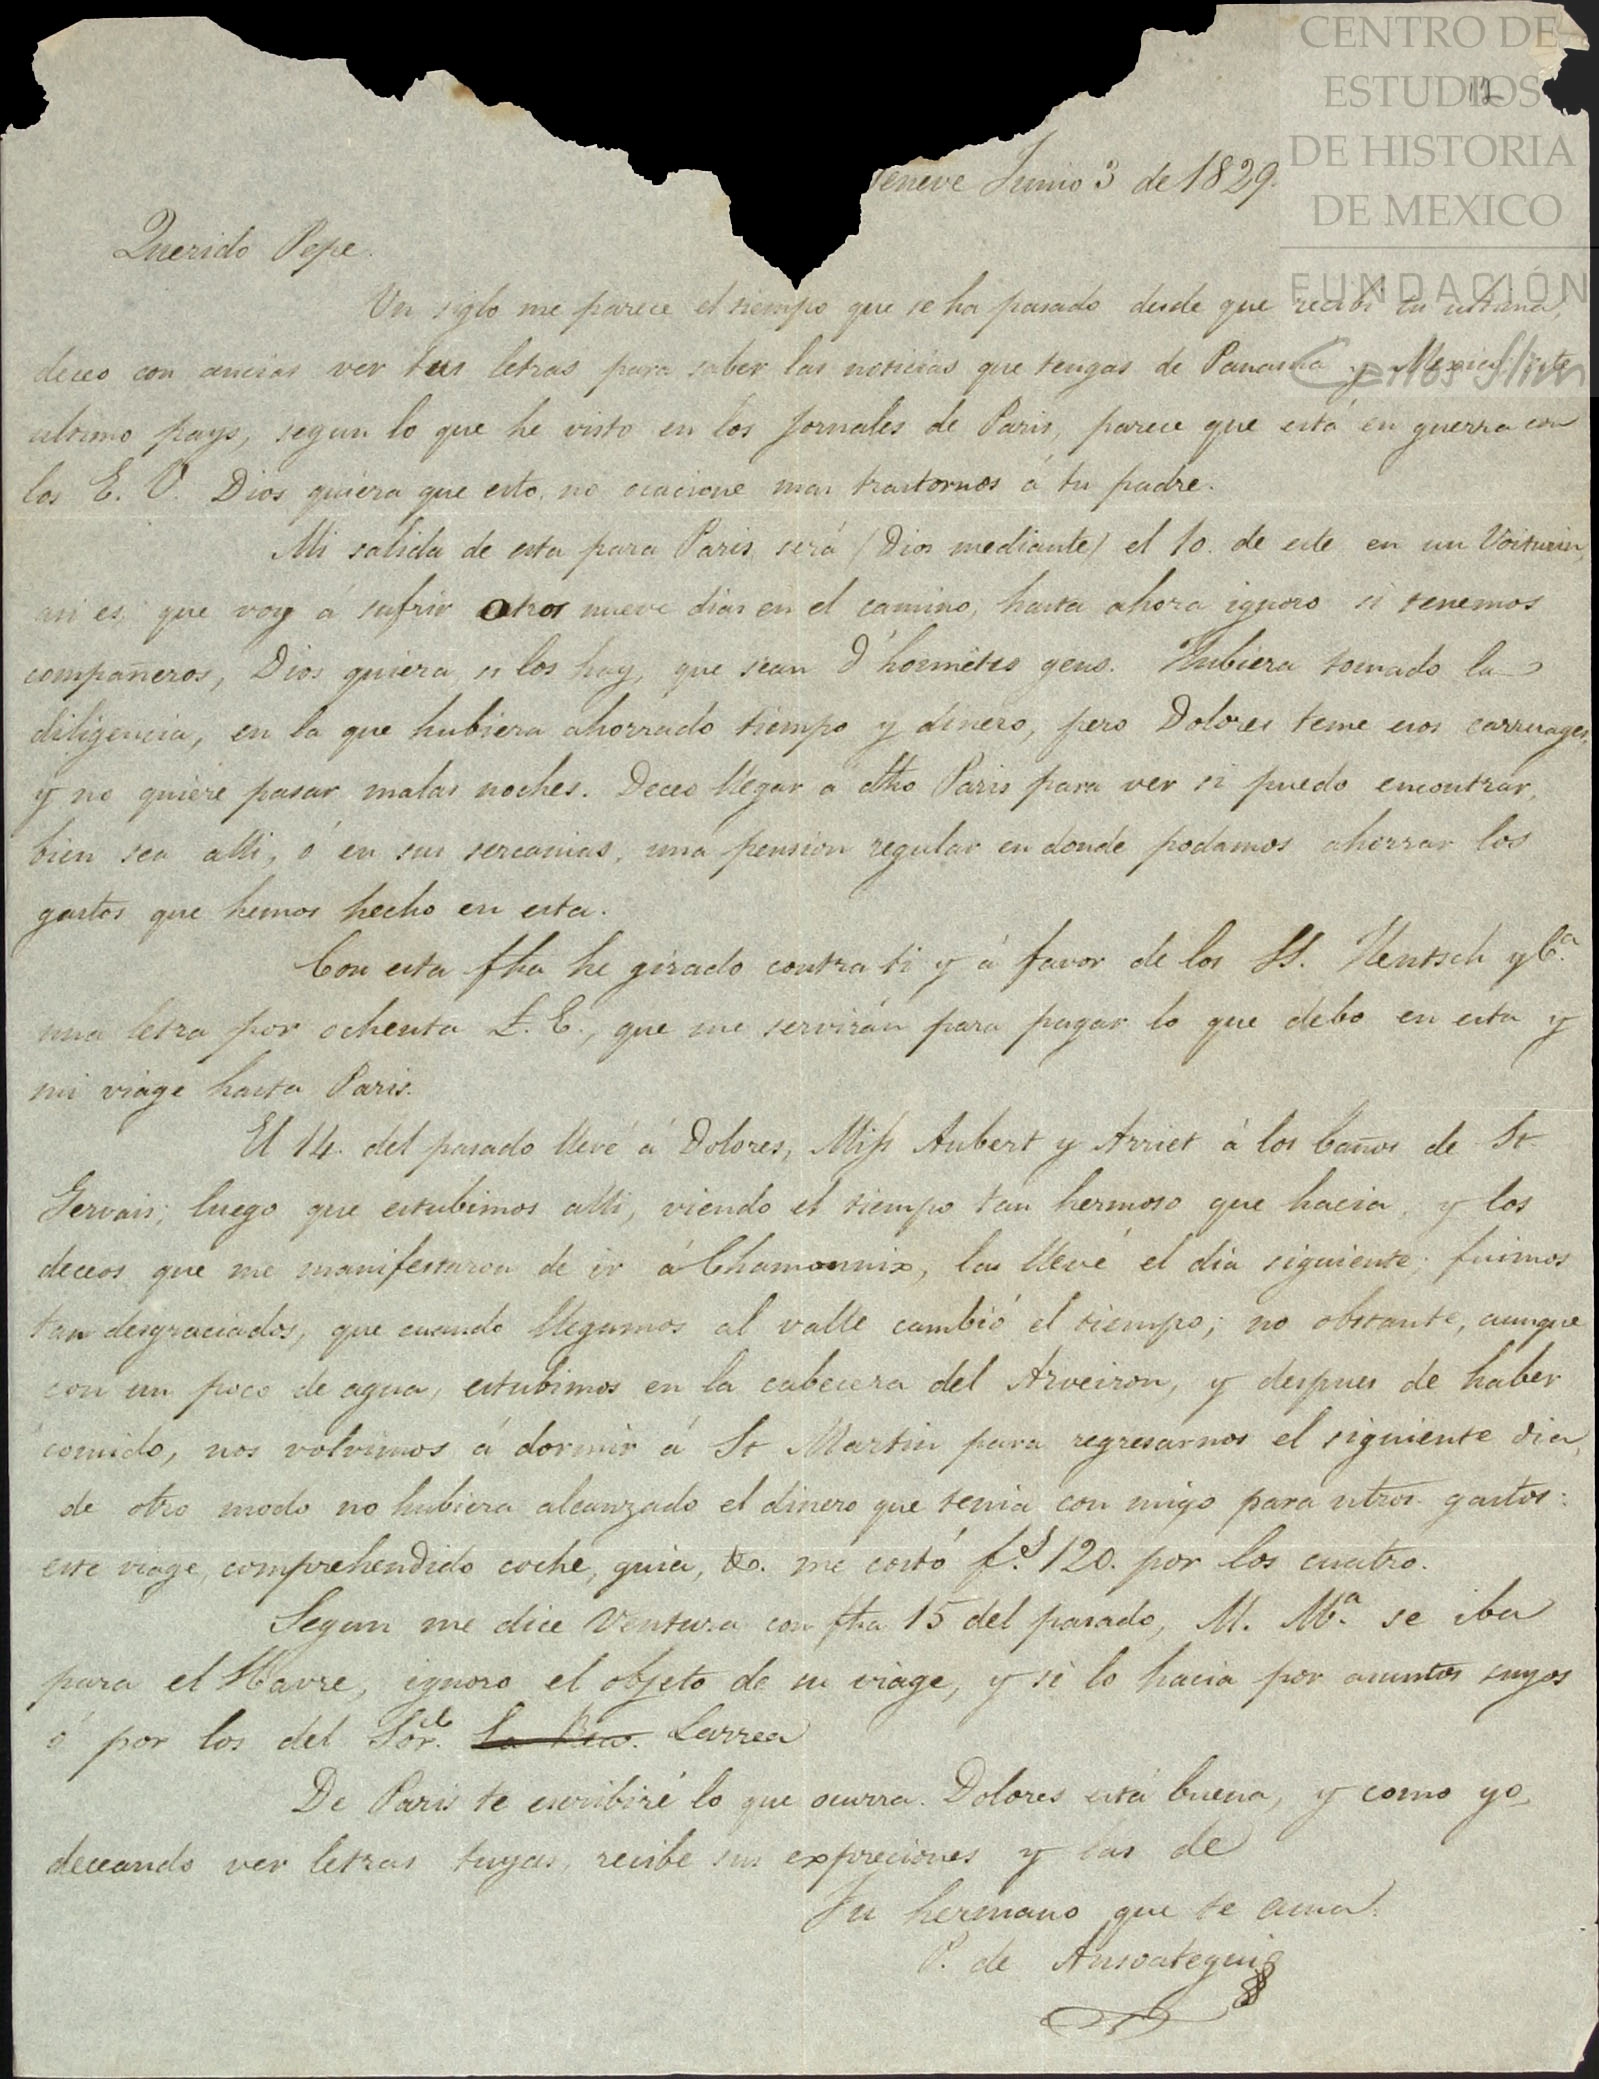 CENTRO DE
ESTUDIOS
DE HISTORIA
DE MEXICO
FUNDACIÓN
Carlos Slim
12
Geneve Junio 3 de 1829.
Querido Pepe.
Un siglo me parece el tiempo que se ha pasado desde que recibi tu ultima,
deceo con ancias ver tus letras para saber las noticias que tengas de Panama y Mexico. este
ultimo pays, segun lo que he visto en los Jornales de Paris, parece que está en guerra con
los E. U. Dios quiera que esto, no ocacione mas trastornos á tu padre.
Mi salida de esta para Paris será (Dios mediante) el 10. de este en un Voiturin,
asi es, que voy á sufrir otros nueve dias en el camino, hasta ahora ignoro si tenemos
compañeros, Dios quiera si los hay, que sean d'honnêtes gens. Hubiera tomado la
diligencia, en la que hubiera ahorrado tiempo y dinero, pero Dolores teme esos carruages,
y no quiere pasar malas noches. Deceo llegar a dho Paris para ver si puedo encontrar,
bien sea alli, ó en sus sercanias, una pension regular en donde podamos ahorrar los
gastos que hemos hecho en esta.
Con esta fha he girado contra ti y á favor de los SS. Hentsch y Cª.
una letra por ochenta £. E., que me servirán para pagar lo que debo en esta y
mi viage hasta Paris.
El 14. del pasado llevé á Dolores, Miss Aubert y Arriet á los baños de St
Gervais; luego que estubimos alli, viendo el tiempo tan hermoso que hacia, y los
deceos que me manifestaron de ir á Chamounix, las llevé el dia siguiente; fuimos
tan desgraciados, que cuando llegamos al valle cambió el tiempo; no obstante, aunque
con un poco de agua, estubimos en la cabecera del Arveiron, y despues de haber
comido, nos volvimos á dormir á St Martin para regresarnos el siguiente dia,
de otro modo no hubiera alcanzado el dinero que tenia con migo para ntros gastos:
este viage, comprehendido coche, guia, &c. me costó f.s 120. por los cuatro.
Segun me dice Ventura con fha 15 del pasado, M. Mª. se iba
para el Havre, ignoro el objeto de su viage, y si lo hacia por asuntos suyos
ó por los del Sor. Larrea
De Paris te escribiré lo que ocurra. Dolores está buena, y como yo,
deceando ver letras tuyas, recibe sus expreciones y las de
Tu hermano que te ama.
P. de Ansoategui